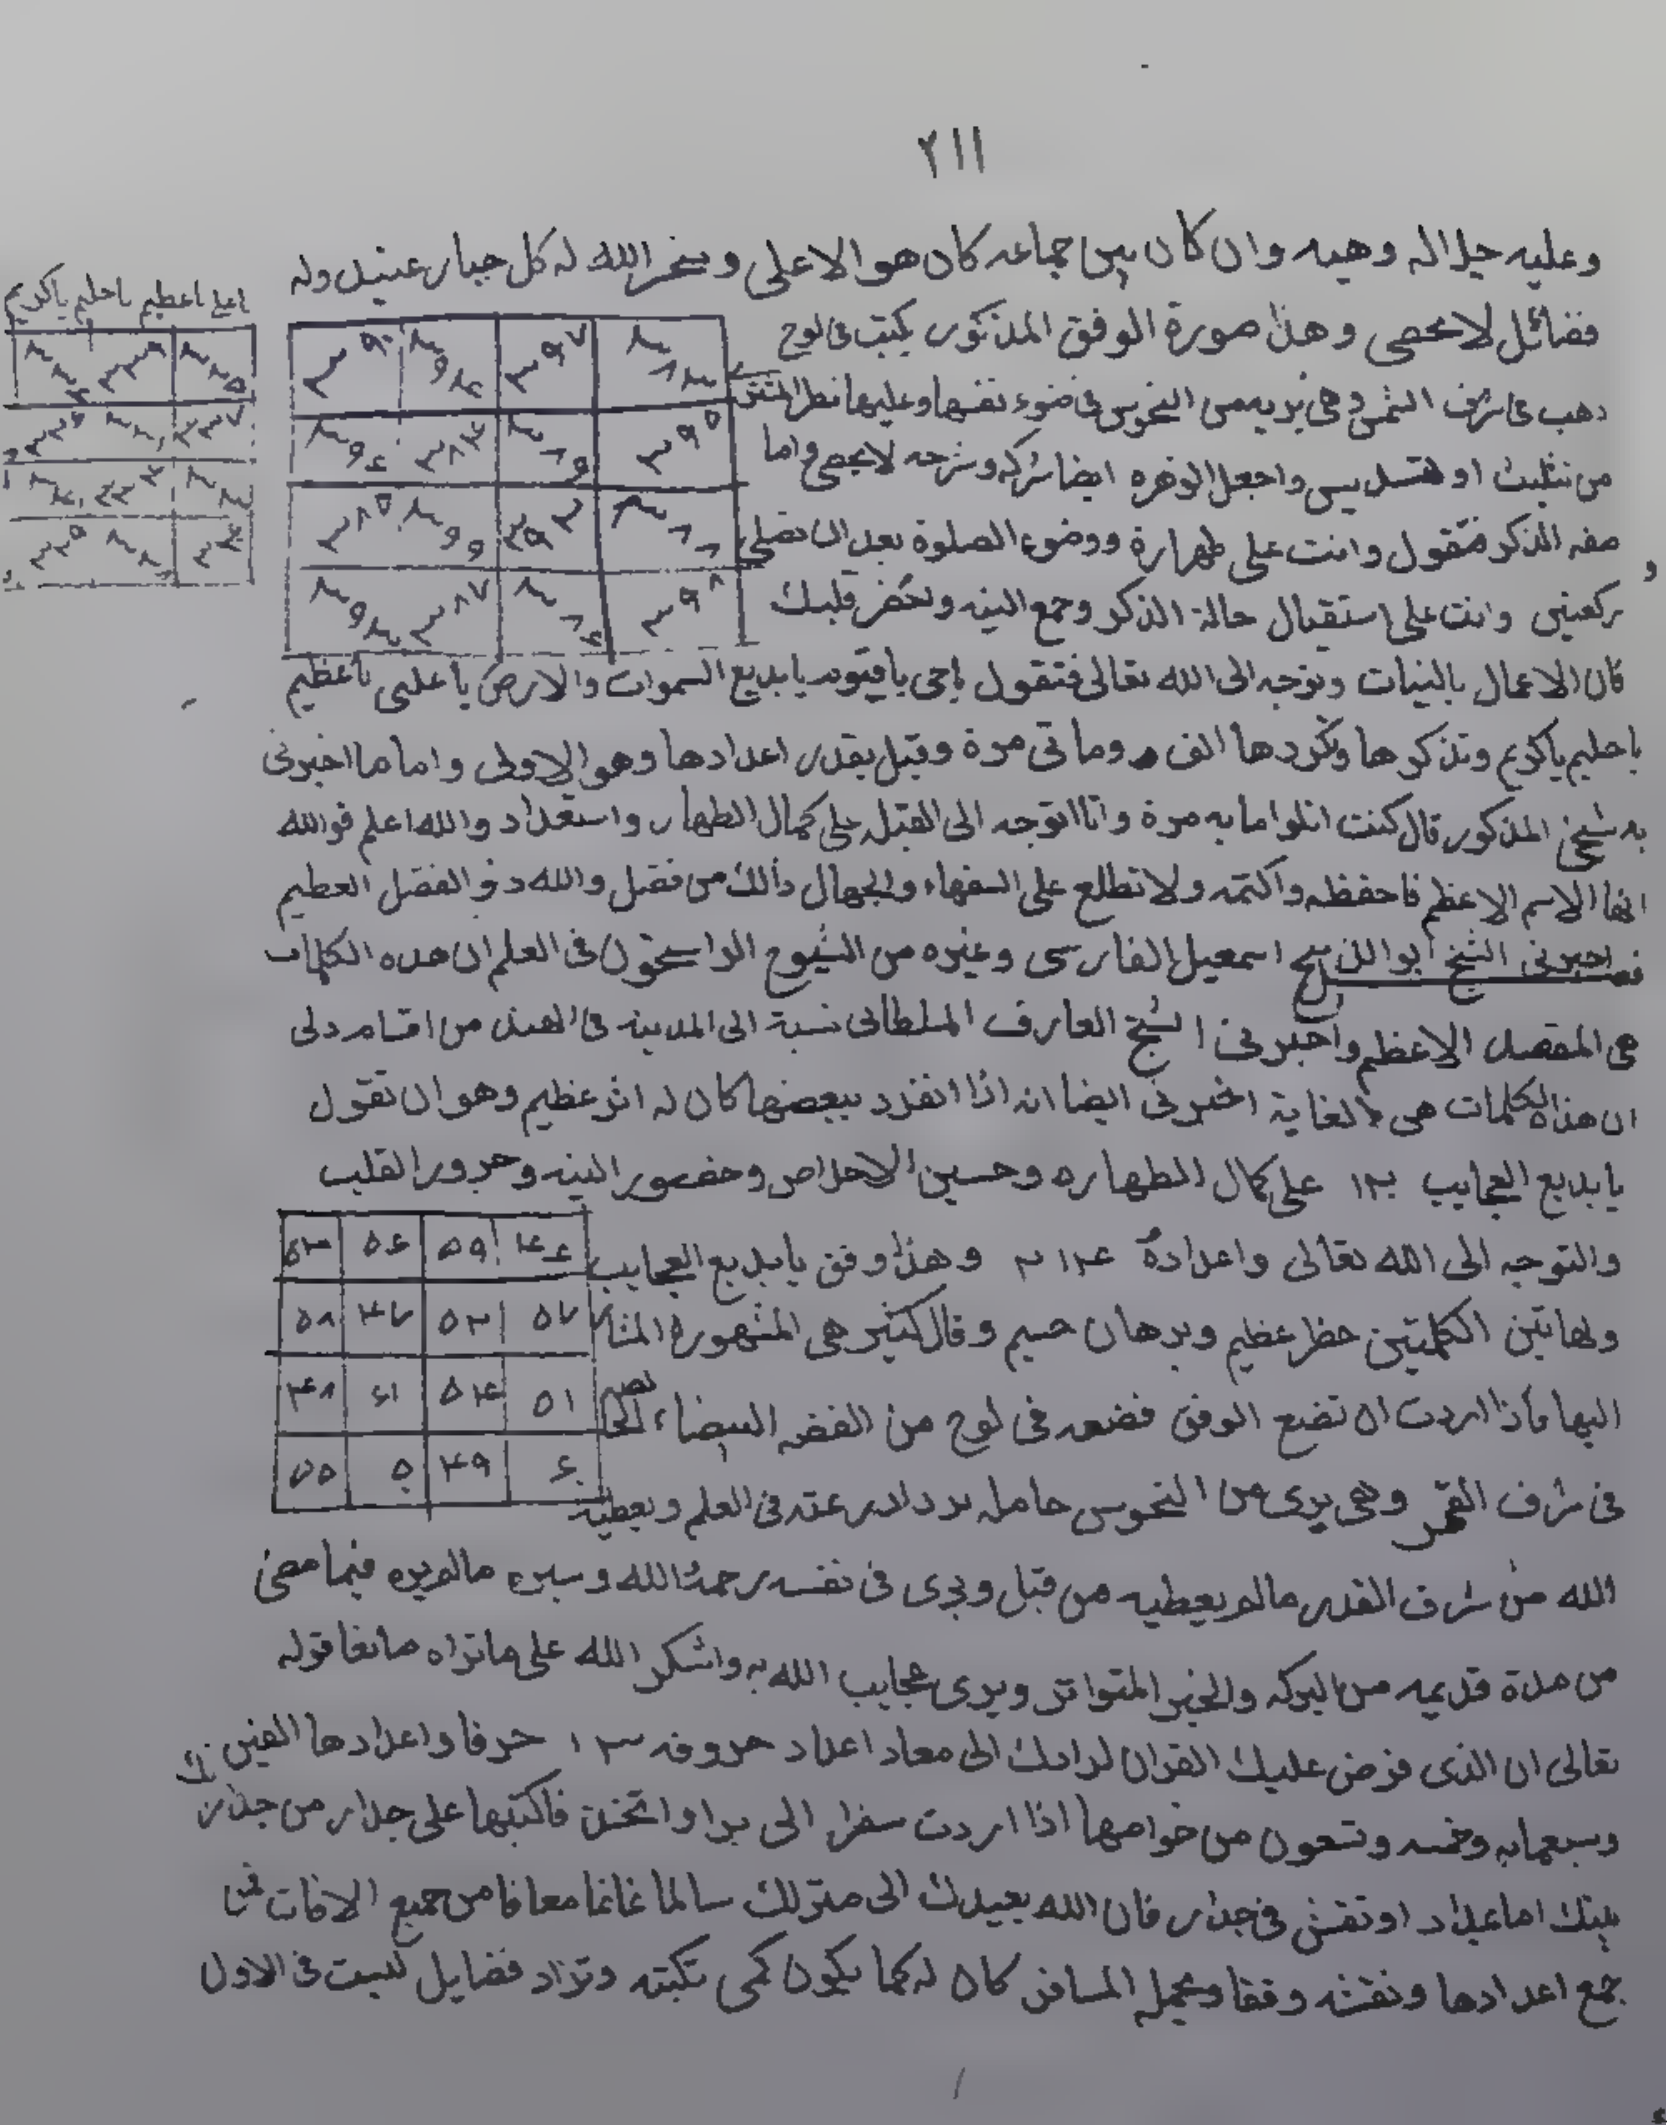 ٢١١
وعليه جلاله وهيبه وان كان بين جماعه كان هو الاعلى ويسخر الله له كل جبار عنيد وله
ياعلي ياعظيم ياحليم ياكريم
فضائل لا تحصى وهذا صورة الوفق المذكور يكتب فى لوح
دهب فى شرف الشمس وهى بريه من النحوس فى ضوء نفسها وعليها نظر المشترى
من تثليث او تسديس واجعل الوخره ايضا شركه وشرحه لا يحصى واما
صفه الذكر فتقول وانت على طهارة ووضوء الصلوة بعد ان تصلى
ركعتين وانت على استقبال حالة الذكر وجمع النيه وتحضر قلبك
فان الاعمال بالنيات وتوجه الى الله تعالى فتقول ياحى ياقيوم يابديع السموات والارض ياعلى ياعظيم
ياحليم ياكريم وتذكرها وتكررها الف وماتى مرة وقيل بقدر اعدادها وهو الاولى واما ما اخبرنى
به شيخى المذكور قال كنت اتلوا مايه مرة وانا اتوجه الى القبله على كمال الطهار واستعداد والله اعلم فوالله
انها الاسم الاعظم فاحفظه واكتمه ولا تطلع على السفهاء والجهال ذالك من فضل والله ذو الفضل العظيم
فصل اخبرنى الشيخ ابو الذبيح اسمعيل الفارسى وغيره من الشيوخ الراسخون فى العلم ان هده الكلمات
هى المقصد الاعظم واخبرنى الشيخ العارف السلطانى نسبة الى المدينه فى الهند من اقسام دلى
ان هذه الكلمات هى الغاية اخبرنى ايضا انه اذا انفرد ببعضها كان له اثر عظيم وهو ان تقول
يابديع العجايب ١٢٠ على كمال الطهاره وحسين الاخلاص وحضور النيه وحرور القلب
والتوجه الى الله تعالى واعداده ٢١٤ وهذا وفق يابديع العجايب
ولهاتين الكلمتين حظر عظيم وبرهان جسيم وقال كثير هى المشهورة المشار
اليها فاذا اردت ان تضع الوفق فضعه فى لوح من الفضه البيضاء
فى شرف القمر وهى برى من النحوس حامله يزداد رغبته فى العلم ويعطيه
الله من شرف القدر مالم يعطيه من قبل ويرى فى نفسه رحمة الله وسيره مالم يره فيما مضى
من مدة قديمه من البركه والخير المتواتر ويرى عجايب الله به واشكر الله على ما تراه مانعا قوله
تعالى ان الذى فرض عليك القران لرادك الى معاد اعداد حروفه ١٣ حرفا واعدادها الفين
وسبعمايه وخمسه وتسعون من خواصها اذا اردت سفرا الى برا واتخذت فاكتبها على جدار من جدار
بيتك اما عداد او تقش فى جدار فان الله يعيدك الى منزلك سالما غانما معافا من جميع الافات فمن
جمع اعدادها ونقشه وفقا وبحمله المسافر كان له كما يكون كمى تكبته وتزاد فضايل ليست فى الاول
٥٣ ٥٦ ٥٩ ٤٦
٥٨ ٤٧ ٥٢ ٥٧
٤٨ ٦١ ٥٤ ٥١
٥٥ ٥٠ ٤٩ ٦٠